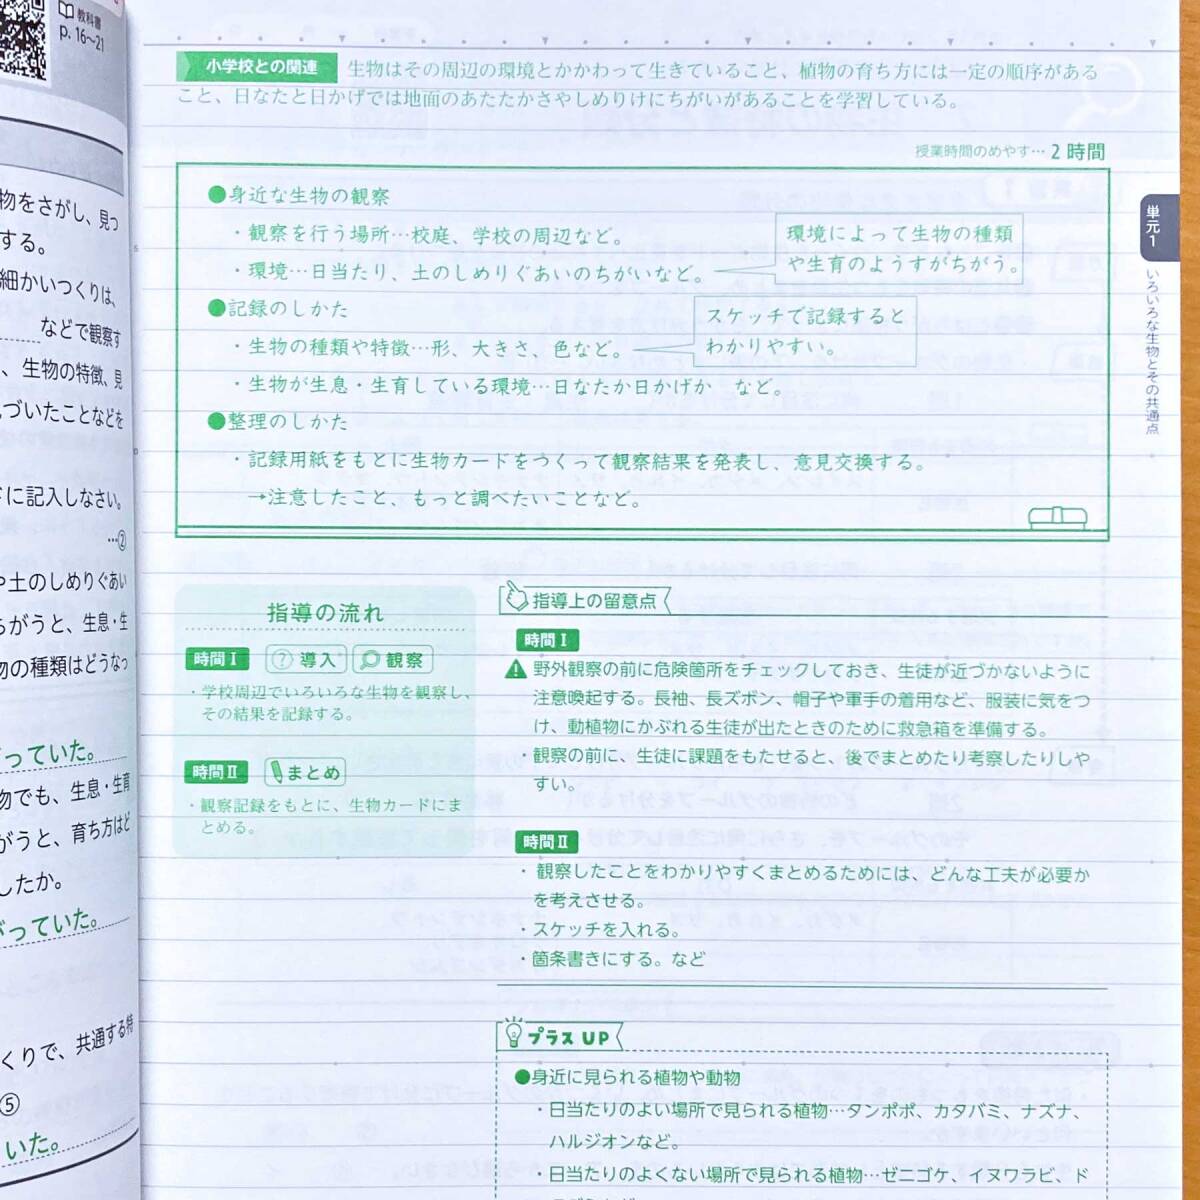 教科書
p. 16〜21
物をさがし、見つ
する。
細かいつくりは、
などで観察す
、生物の特徴、見
づいたことなどを
に記入しなさい。
…②
や土のしめりぐあい
ちがうと、生息・生
物の種類はどうなっ
っていた。
物でも、生息・生育
がうと、育ち方はど
したか。
がっていた。
くりで、共通する特
⑤
いた。
小学校との関連 生物はその周辺の環境とかかわって生きていること、植物の育ち方には一定の順序がある
こと、日なたと日かげでは地面のあたたかさやしめりけにちがいがあることを学習している。
授業時間のめやす…2時間
●身近な生物の観察
・観察を行う場所…校庭、学校の周辺など。
・環境…日当たり、土のしめりぐあいのちがいなど。
環境によって生物の種類
や生育のようすがちがう。
●記録のしかた
・生物の種類や特徴…形、大きさ、色など。
スケッチで記録すると
わかりやすい。
・生物が生息・生育している環境…日なたか日かげか　など。
●整理のしかた
・記録用紙をもとに生物カードをつくって観察結果を発表し、意見交換する。
→注意したこと、もっと調べたいことなど。
単元1
いろいろな生物とその共通点
指導の流れ
時間Ⅰ ?導入 観察
・学校周辺でいろいろな生物を観察し、
その結果を記録する。
時間Ⅱ まとめ
・観察記録をもとに、生物カードにま
とめる。
指導上の留意点
時間Ⅰ
野外観察の前に危険箇所をチェックしておき、生徒が近づかないように
注意喚起する。長袖、長ズボン、帽子や軍手の着用など、服装に気をつ
け、動植物にかぶれる生徒が出たときのために救急箱を準備する。
観察の前に、生徒に課題をもたせると、後でまとめたり考察したりしや
すい。
時間Ⅱ
・観察したことをわかりやすくまとめるためには、どんな工夫が必要か
を考えさせる。
・スケッチを入れる。
・箇条書きにする。など
プラス UP
●身近に見られる植物や動物
・日当たりのよい場所で見られる植物…タンポポ、カタバミ、ナズナ、
ハルジオンなど。
・日当たりのよくない場所で見られる植物…ゼニゴケ、イヌワラビ、ド